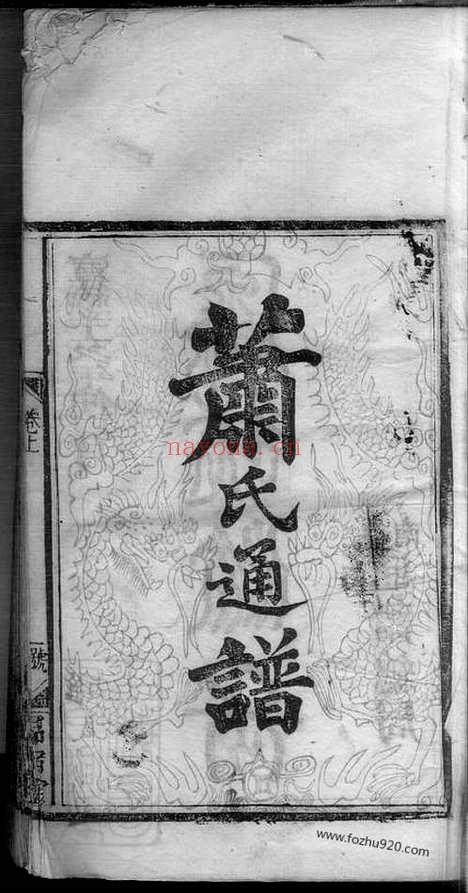 蕭氏通譜
卷上
一號
nayona.cn
www.fozhu920.com